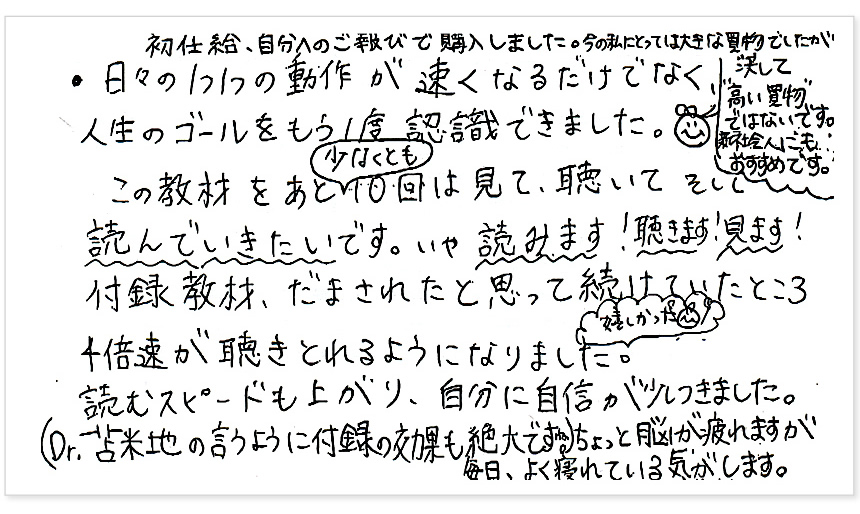 初仕給、自分へのご報びで購入しました。今の私にとっては大きな買物でしたが
決して
"高い買物"
ではないです。
新社会人にも…
おすすめです。
・日々の1つ1つの動作が速くなるだけでなく
人生のゴールをもう1度認識できました。
少なくとも
この教材をあと10回は見て、聴いてそして
読んでいきたいです。いや読みます!聴きます!見ます!
付録教材、だまされたと思って続けていたところ
嬉しかった
4倍速が聴きとれるようになりました。
読むスピードも上がり、自分に自信が少しつきました。
(Dr.苫米地の言うように付録の効果も絶大ですね)ちょっと脳が疲れますが
毎日、よく寝れている気がします。